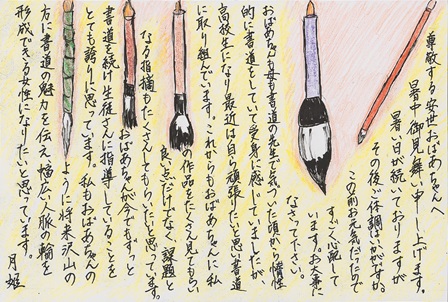 尊敬する安世おばあちゃんへ
暑中御見舞い申し上げます。
暑い日が続いておりますが
その後ご体調はいかがですか。
この前お元気だったので
すごく心配して
います。お大事に
なさって下さい。
おばあちゃんも母も書道の先生で気づいた頃から惰性
的に書道をしていて受身に感じていましたが、
高校生になり最近は自ら頑張りたいと思い書道
に取り組んでいます。これからもおばあちゃんに私
の作品をたくさん見てもらい
良点だけでなく課題と
なる指摘もたくさんしてもらいたいと思っています。
おばあちゃんが今でもずっと
書道を続け生徒さんに指導していることを
とても誇りに思っています。私もおばあちゃんの
ように将来沢山の
方に書道の魅力を伝え幅広い人脈の輪を
形成できる女性になりたいと思っています。
月姫